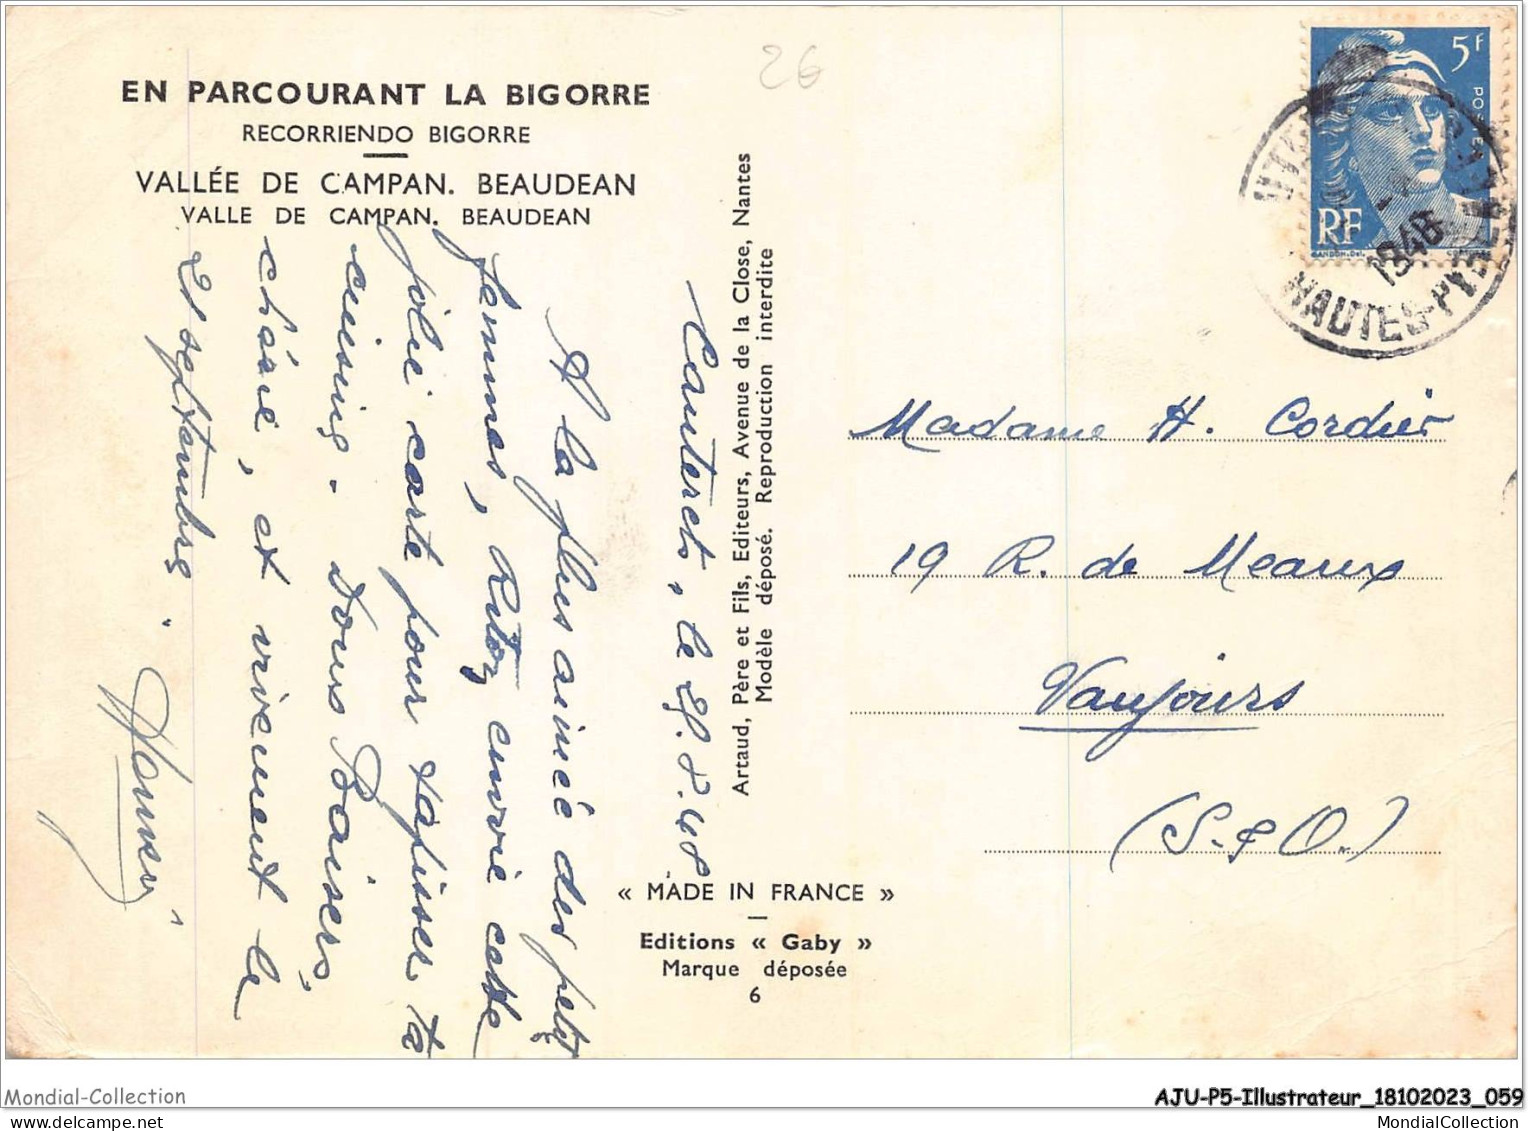 26
EN PARCOURANT LA BIGORRE
RECORRIENDO BIGORRE
VALLÉE DE CAMPAN. BEAUDEAN
VALLE DE CAMPAN. BEAUDEAN
Cauterets, le 28.8.48
A la plus aimée des petites
femmes, envoie cette
jolie carte pour tapisser ta
cuisine. Doux Baisers,
chérie, et vivement le
21 septembre.
Artaud, Père et Fils, Editeurs, Avenue de la Close, Nantes
Modèle déposé. Reproduction interdite
« MADE IN FRANCE »
Editions « Gaby »
Marque déposée
6
5F
POSTES
RF
GANDON.Del.
1948
HAUTES-PYRÉNÉES
Madame H. Cordier
19 R. de Meaux
Vaujours
(S-&O.)
Mondial-Collection
AJU-P5-Illustrateur_18102023_059
MondialCollection